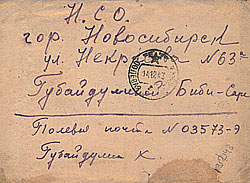 Н. С. О.
гор. Новосибирск
ул. Некр N 63а
Губайдулиной Биби-Сара
Полевая почта N 03573-Я
Губайдулина Х